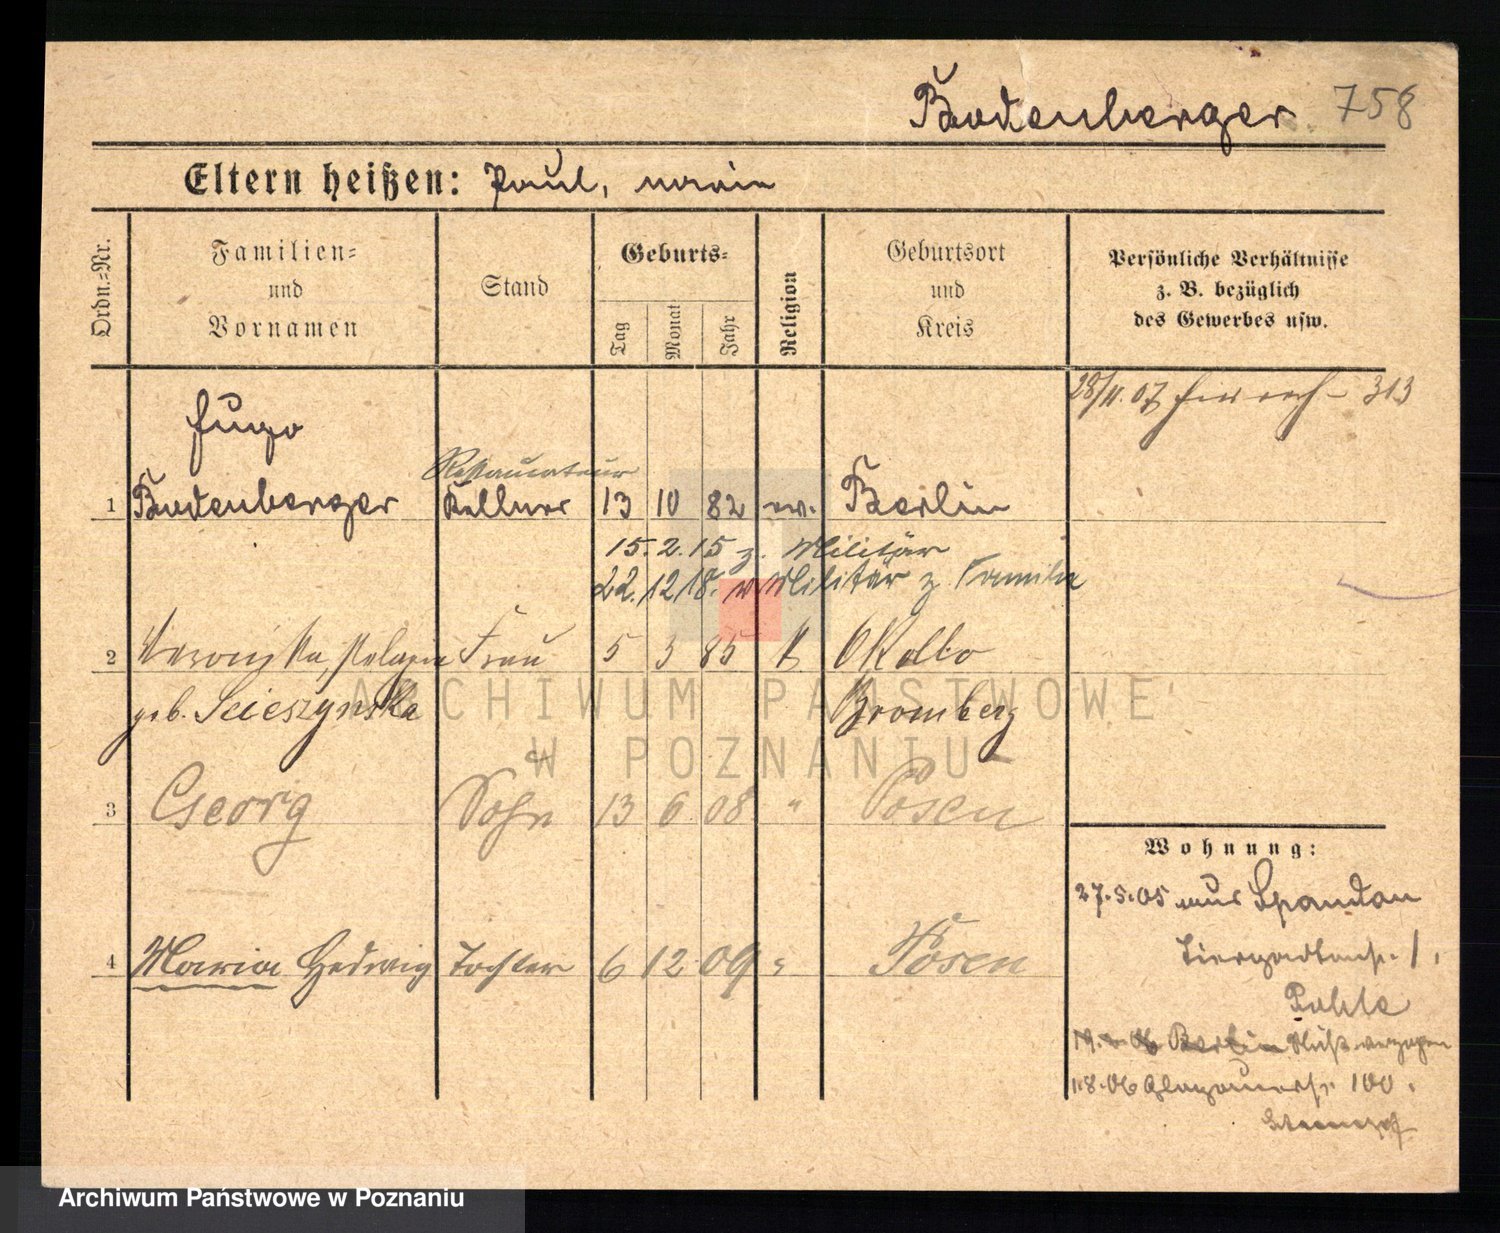 Bodenberger 758
Eltern heißen: Paul, Maria
Ordn.=Nr.
Familien=
und
Vornamen
Stand
Geburts=
Tag
Monat
Jahr
Religion
Geburtsort
und
Kreis
Persönliche Verhältnisse
z. B. bezüglich
des Gewerbes usw.
28/11.07 313
Hugo
Restaurateur
1 Bodenberger Kellner 13 10 82 ev. Berlin
15.2.15 z. Militär
22.12.18. v. Militär z. Familie
2 Veronika, Pelagia Frau 5 3 85 k
geb. Scieszynska Bromberg
3 Georg Sohn 13 6 08 " Posen
4 Maria Hedwig Tochter 6 12 09 " Posen
Wohnung:
27.5.05 aus Spandau
1.
19. 06 Berlin verzogen
1.8.06 Glogauerstr. 100.
ARCHIWUM PAŃSTWOWE
W POZNANIU
Archiwum Państwowe w Poznaniu